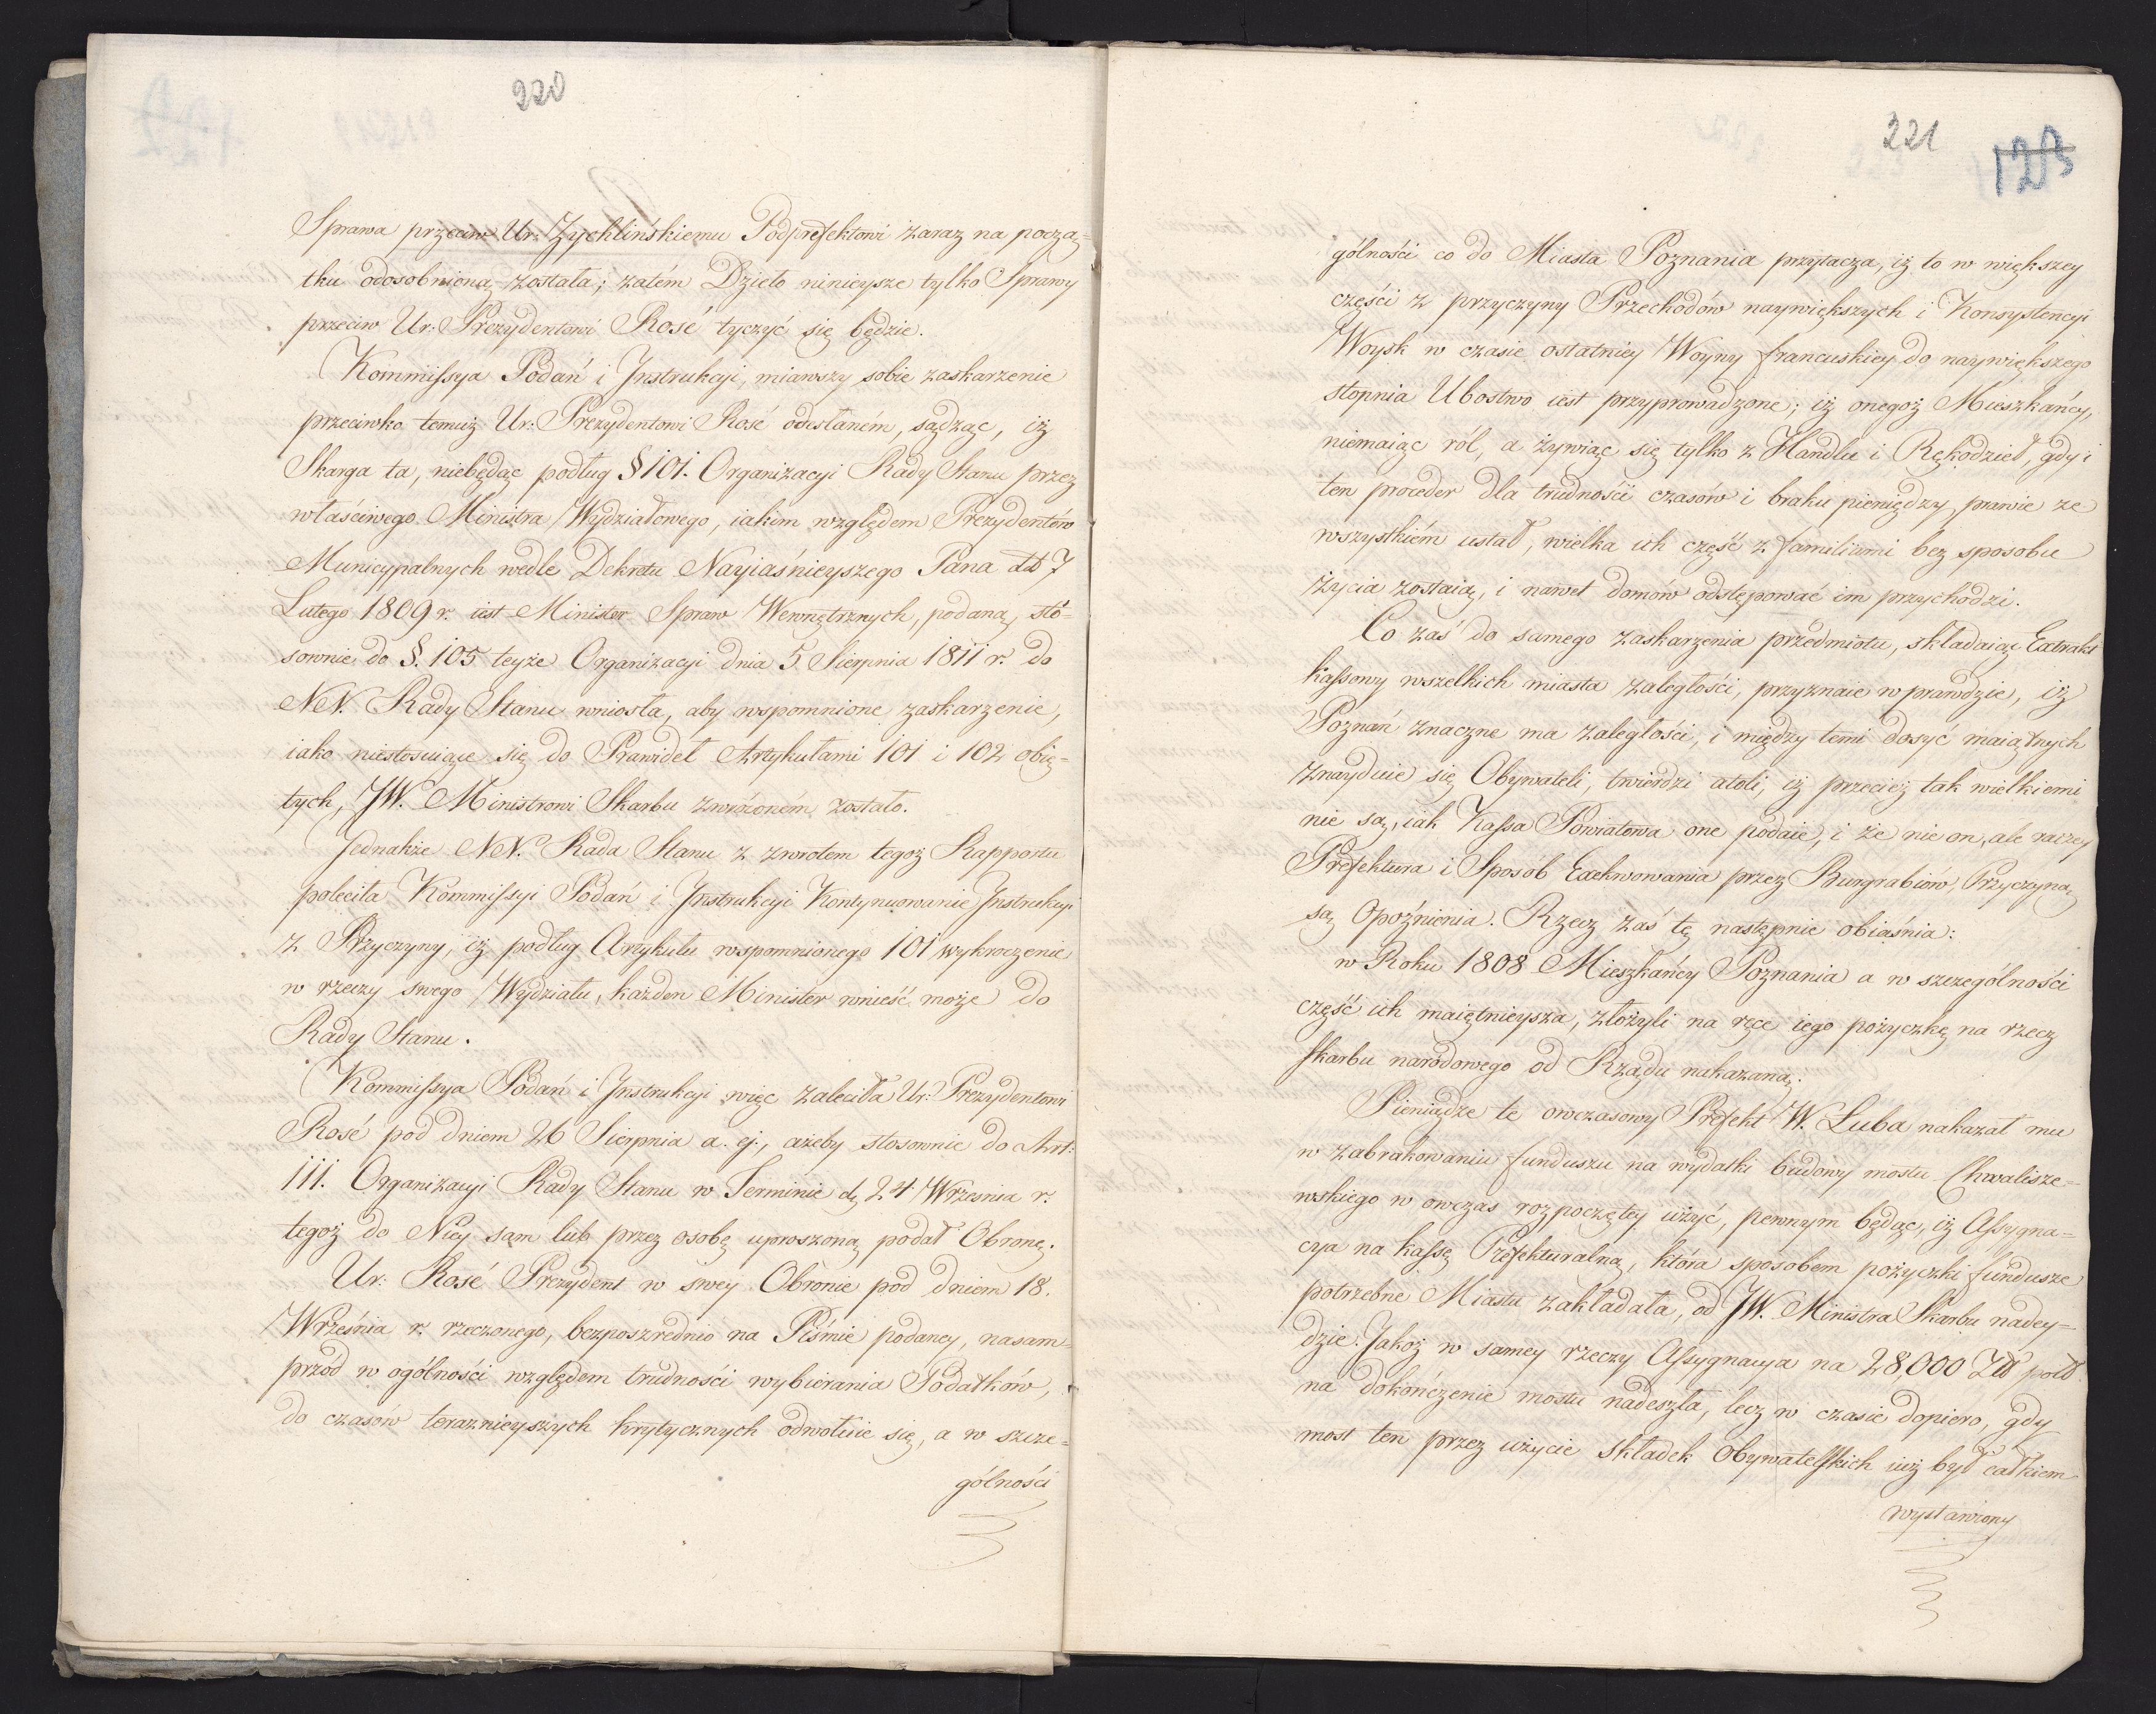 220
Sprawa przeciw Ur: Zychlińskiemu Podprefektowi zaraz na począ=
tku odosobnioną została; zatém Dzieło ninieysze tylko Sprawy
przeciw Ur: Prezydentowi Rosé tyczyć się będzie.
Kommissya Podań i Jnstrukcyi, miawszy sobie zaskarzenie
przeciwko temuż Ur: Prezydentowi Rosé odesłaném, sądząc, iż
Skarga ta, niebędąc podług § 101. Organizacyi Rady Stanu przez
właściwego Ministra Wydziałowego, iakim względem Prezydentów
Municypalnych wedle Dekretu Nayiaśnieyszego Pana dd 7
Lutego 1809 r. iest Minister Spraw Wewnętrznych, podaną, sto=
sownie do §. 105 teyże Organizacyi dnia 5. Sierpnia 1811 r. do
NN. Rady Stanu wniosła, aby wspomnione zaskarzenie,
iako niestosuiące się do Prawideł Artykułami 101 i 102 obię=
tych, JW. Ministrowi Skarbu zwróconém zostało.
Jednakże NN. Rada Stanu z zwrotem tegoż Rapportu
poleciła Kommissyi Podań i Jnstrukcyi Kontynuowanie Jnstrukcyi
z Przyczyny, iż podług Artykułu wspomnionego 101 wykroczenie
w rzeczy swego Wydziału, każden Minister wnieść może do
Rady Stanu.
Kommissya Podań i Jnstrukcyi więc zaleciła Ur: Prezydentowi
Rosé pod dniem 26 Sierpnia a. ej., ażeby stosownie do Art:
111. Organizacyi Rady Stanu w Terminie d. 24 Września r.
tegoż do Niey sam lub przez osobę uproszoną podał Obronę.
Ur: Rosé Prezydent w swey Obronie pod dniem 18.
Września r. rzeczonego, bezposzrednio na Piśmie podaney, nasam=
przód w ogólności względem trudności wybierania Podatków,
do czasów teraznieyszych krytycznych odwołuie się, a w szcze=
gólności
221
123
gólności co do Miasta Poznania przytacza, iż to w większey
części z przyczyny Przechodów naywiększych i Konsystencyi
Woysk w czasie ostatniey Woyny francuskiey do naywiększego
stopnia Ubostwo iest przyprowadzone; iż onegoż Mieszkańcy,
niemaiąc ról, a żywiąc się tylko z Handlu i Rękodzieł, gdy i
ten proceder dla trudności czasów i braku pieniędzy, prawie ze
wszystkiém ustał, wielka ich część z familiami bez sposobu
życia zostaią, i nawet domów odstępować im przychodzi.
Co zaś do samego zaskarzenia przedmiotu, składaiąc Extrakt
kassowy wszelkich miasta zaległości, przyznaie w prawdzie, iż
Poznań znaczne ma zaległości, i między temi dosyć maiątnych
znayduie się Obywateli, twierdzi atoli, iż przecież tak wielkiemi
nie są, iak Kassa Powiatowa one podaie, i że nie on, ale raczey
Prefektura i Sposób Exekwowania przez Burgrabiów, Przyczyną
są Opoźnienia. Rzecz zaś tę następnie obiaśnia:
w Roku 1808 Mieszkańcy Poznania a w szczególności
część ich maiętnieysza, złożyli na ręce iego pożyczkę na rzecz
skarbu narodowego od Rządu nakazaną.
Pieniądze te owczasowy Prefekt W. Łuba nakazał mu
w zabrakowaniu funduszu na wydatki budowy mostu Chwalisze=
wskiego w owczas rozpoczętey użyć, pewnym będąc, iż Assygna=
cya na kassę Prefekturalną, która sposobem pożyczki fundusze
potrzebne Miastu zakładała, od JW. Ministra Skarbu nadey=
dzie. Jakoż w samey rzeczy Assygnacya na 28,000 Zł pol
na dokończenie mostu nadeszła, lecz w czasie dopiero, gdy
most ten przez użycie składek Obywatelskich iuż był całkiem
wystawiony